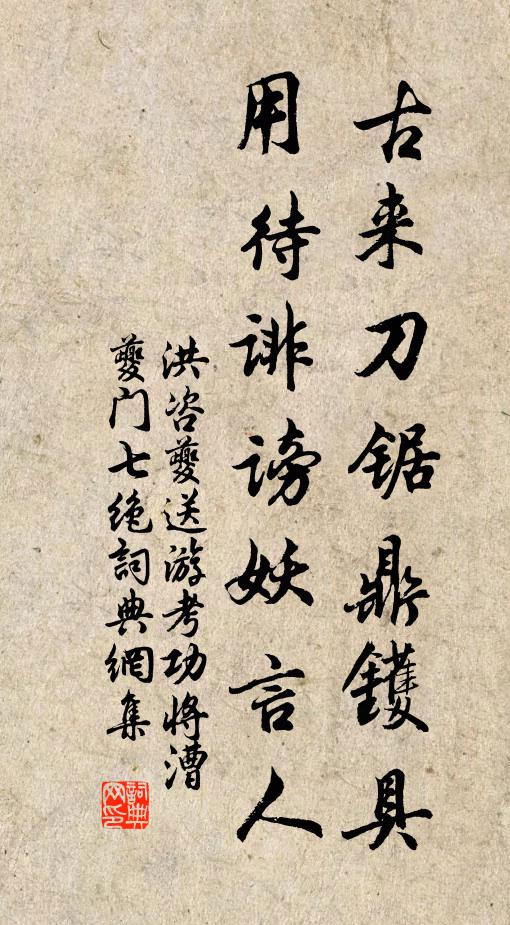 古来刀锯鼎鑊具
用待誹謗妖言人
洪咨夔送游考功将漕
夔门七绝詞典網集
詞典
网印